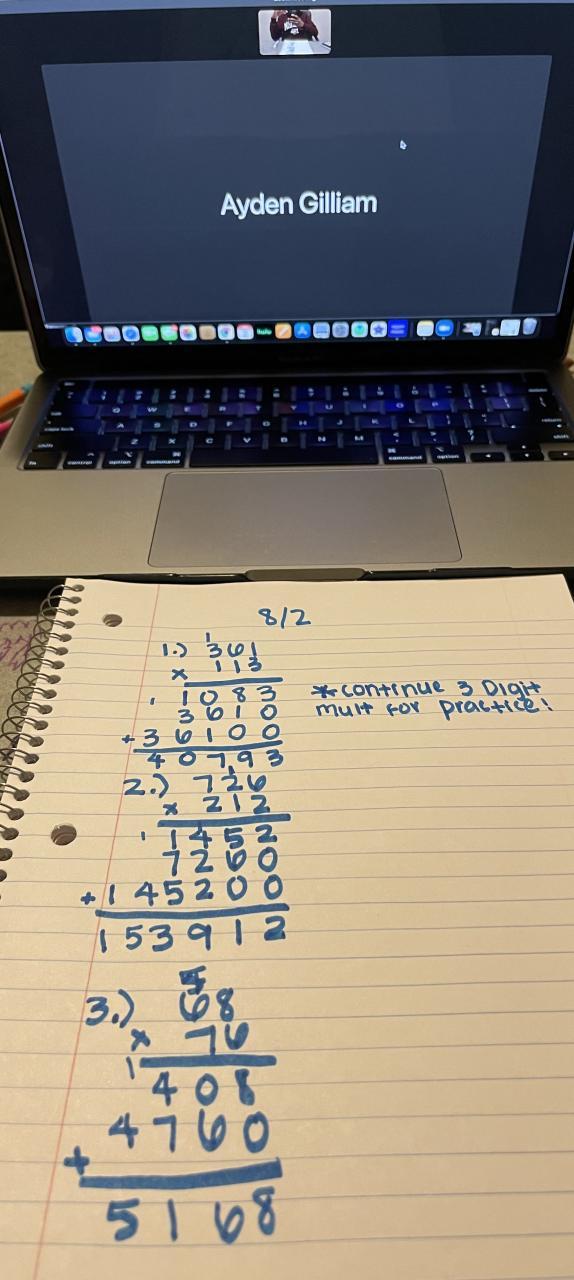 Ayden Gilliam
8/2
1
1.) 361
x 113
1 1083
3610
+36100
40793
1
2.) 726
x 212
1 1452
7260
+145200
153912
3.) 68
x 76
1 408
4760
+
5168
*continue 3 Digit
mult for practice!